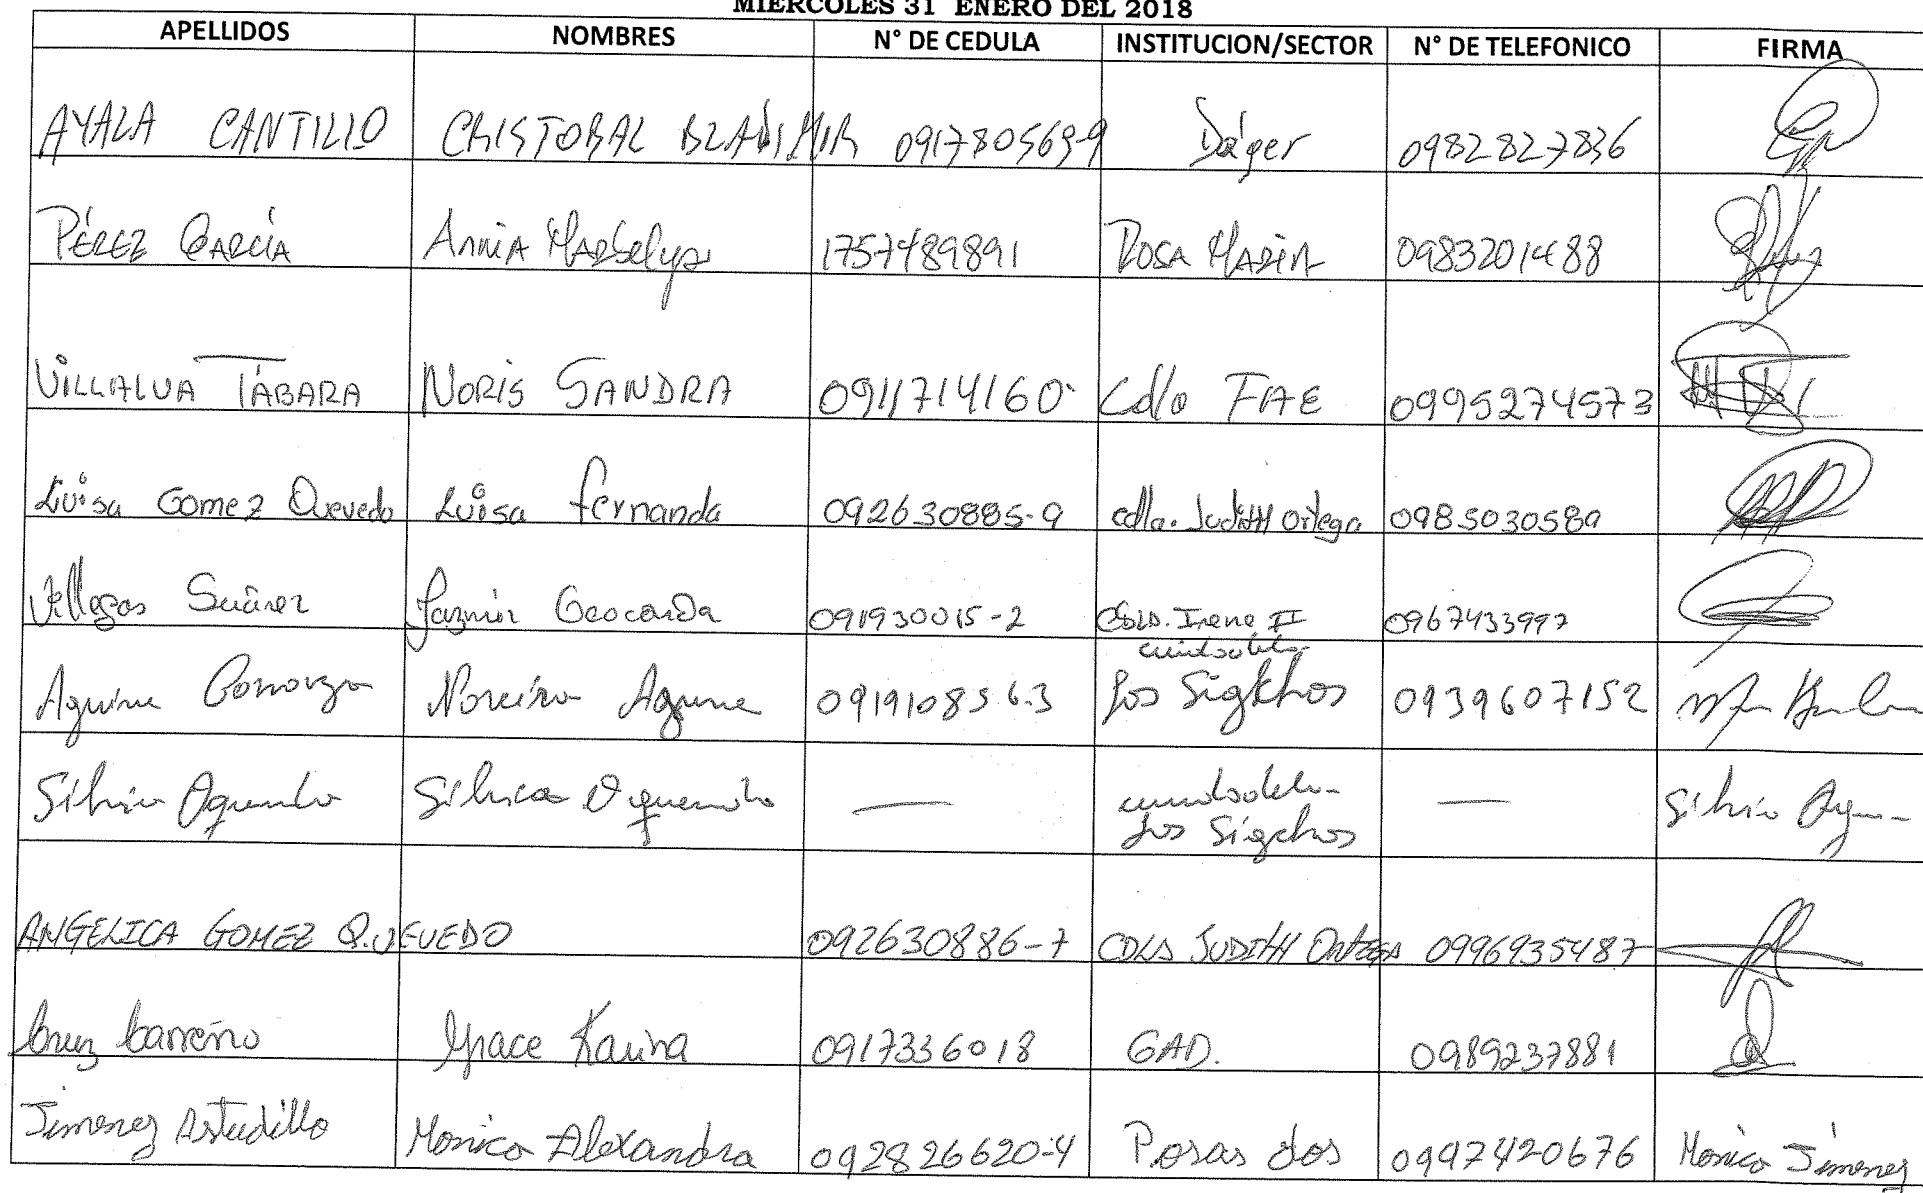 MIERCOLES 31 ENERO DEL 2018
APELLIDOS NOMBRES N° DE CEDULA INSTITUCION/SECTOR N° DE TELEFONICO FIRMA
AYALA CANTILLO CRISTOBAL BLADIMIR 091780569-9 Dáger 0982827836
PÉREZ GARCÍA ANNIA MARBELYS 1757489891 ROSA MARIA 0983201488
VILLALVA TÁBARA NORIS SANDRA 0911714160 Cdla FAE 0995274573
Luisa Gomez Quevedo Luisa fernanda 092630885-9 cdla. Judith Ortega 0985030589
Villegas Suárez Jazmin Geoconda 091930015-2 Irene II 0967433997
Aguirre Noreira Aguirre 091910856-3 Los Sigkhos 0939607152
Silvia Oquendo Silvia Oquendo — Los Sigchos — Silvia
ANGELICA GOMEZ QUEVEDO 092630886-7 CDLA JUDITH ORTEGA 0996935487
Cruz Carreño Grace Karina 0917336018 GAD. 0989237881
Jimenez Astudillo Monica Alexandra 092826620-4 Posas dos 0997420676 Monica Jimenez